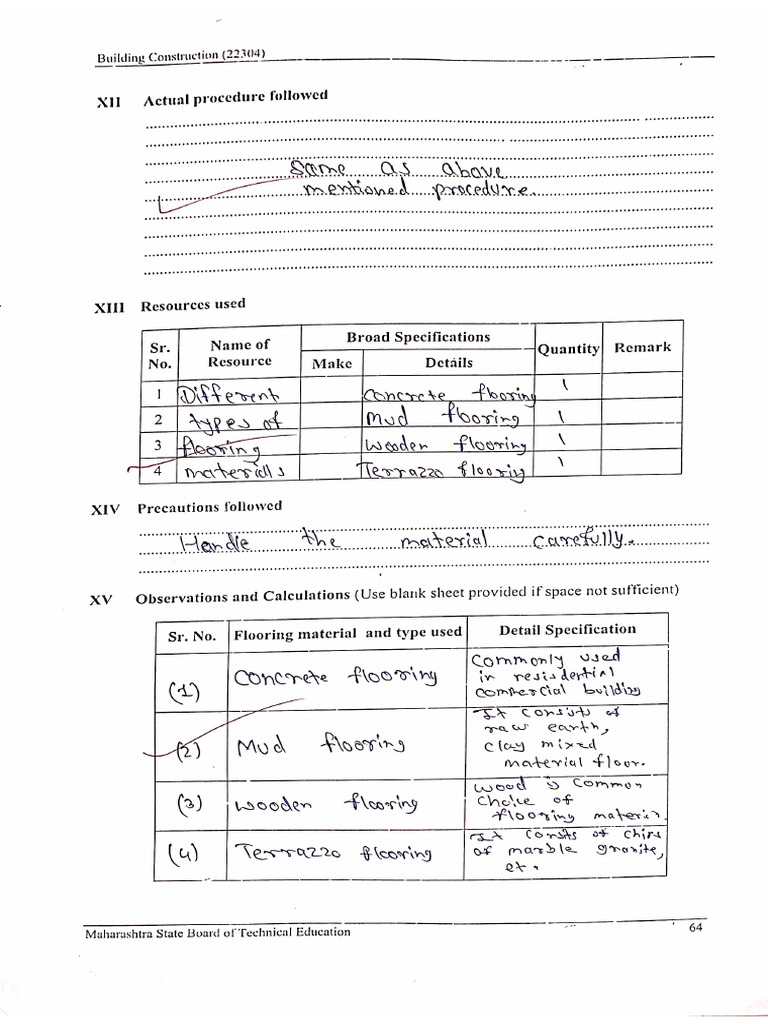 Building Construction (22304)
XII Actual procedure followed
Same as above
mentioned procedure.
XIII Resources used
Sr. No. Name of Resource Broad Specifications Quantity Remark
Make Details
1 Different Concrete flooring 1
2 types of Mud flooring 1
3 flooring Wooden flooring 1
4 materials Terrazzo flooriy 1
XIV Precautions followed
Handle the material carefully.
XV Observations and Calculations (Use blank sheet provided if space not sufficient)
Sr. No. Flooring material and type used Detail Specification
(1) Concrete flooring Commonly used
in resisdential
commercial building
(2) Mud flooring It consists of
raw earth,
clay mixed
material floor.
(3) wooden flooring wood is common
choice of
flooring material
(4) Terrazzo flooring It consts of chips
of marble granite,
et.
Maharashtra State Board of Technical Education 64